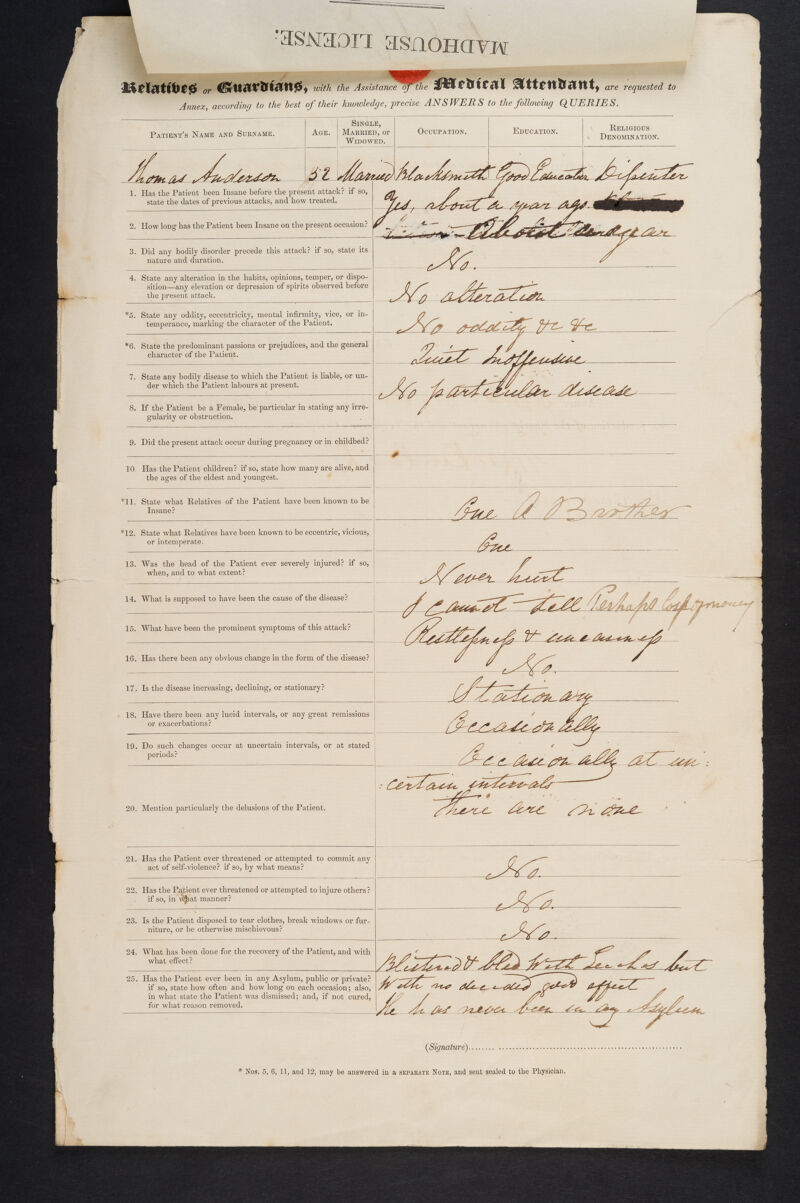 MADHOUSE LICENSE.
Relatives or Guardians, with the Assistance of the Medical Attendant, are requested to
Annex, according to the best of their knowledge, precise ANSWERS to the following QUERIES.
Patient's Name and Surname. Age. Single, Married, or Widowed. Occupation. Education. Religious Denomination.
Thomas Anderson 52 Married Blacksmith Good Education Dissenter
1. Has the Patient been Insane before the present attack? if so,
state the dates of previous attacks, and how treated.
Yes, about a year ago.
2. How long has the Patient been Insane on the present occasion?
About a year
3. Did any bodily disorder precede this attack? if so, state its
nature and duration.
No.
4. State any alteration in the habits, opinions, temper, or dispo-
sition—any elevation or depression of spirits observed before
the present attack.
No alteration
*5. State any oddity, eccentricity, mental infirmity, vice, or in-
temperance, marking the character of the Patient.
No oddity &c &c
*6. State the predominant passions or prejudices, and the general
character of the Patient.
Quiet Inoffensive
7. State any bodily disease to which the Patient is liable, or un-
der which the Patient labours at present.
No particular disease
8. If the Patient be a Female, be particular in stating any irre-
gularity or obstruction.
9. Did the present attack occur during pregnancy or in childbed?
10. Has the Patient children? if so, state how many are alive, and
the ages of the eldest and youngest.
*11. State what Relatives of the Patient have been known to be
Insane?
One A Brother
*12. State what Relatives have been known to be eccentric, vicious,
or intemperate.
One
13. Was the head of the Patient ever severely injured? if so,
when, and to what extent?
Never hurt
14. What is supposed to have been the cause of the disease?
I cannot tell Perhaps loss of money
15. What have been the prominent symptoms of this attack?
Restlessness & uneasiness
16. Has there been any obvious change in the form of the disease?
No.
17. Is the disease increasing, declining, or stationary?
Stationary
18. Have there been any lucid intervals, or any great remissions
or exacerbations?
Occasionally
19. Do such changes occur at uncertain intervals, or at stated
periods?
Occasionally at un:
:certain intervals
20. Mention particularly the delusions of the Patient.
There are none
21. Has the Patient ever threatened or attempted to commit any
act of self-violence? if so, by what means?
No.
22. Has the Patient ever threatened or attempted to injure others?
if so, in what manner?
No.
23. Is the Patient disposed to tear clothes, break windows or fur-
niture, or be otherwise mischievous?
No.
24. What has been done for the recovery of the Patient, and with
what effect?
Blistered & bled With Leeches but
With no decided good effect
25. Has the Patient ever been in any Asylum, public or private?
if so, state how often and how long on each occasion; also,
in what state the Patient was dismissed; and, if not cured,
for what reason removed.
He has never been in any Asylum
(Signature)
* Nos. 5, 6, 11, and 12, may be answered in a SEPARATE NOTE, and sent sealed to the Physician.